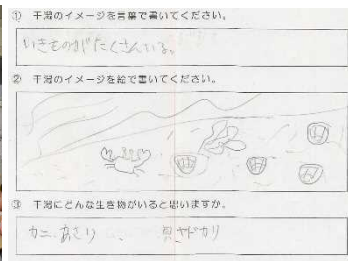 ① 干潟のイメージを言葉で書いてください。
いきものがたくさんいる。
② 干潟のイメージを絵で書いてください。
③ 干潟にどんな生き物がいると思いますか。
カニ あさり 貝 ヤドカリ